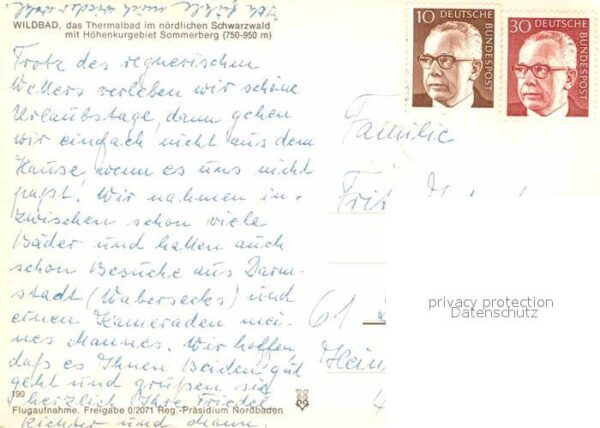 WILDBAD, das Thermalbad im nördlichen Schwarzwald
mit Höhenkurgebiet Sommerberg (750-950 m)
Trotz des regnerischen
Wetters verleben wir schöne
Urlaubstage, dann gehen
wir einfach nicht aus dem
Hause, wenn es uns nicht
paßt. Wir nahmen in-
zwischen schon viele
Bäder und hatten auch
schon Besuche aus Darm-
stadt (Wabersecks) und
einen Kameraden mei-
nes Mannes. Wir hoffen,
daß es Ihnen Beiden gut
geht und grüßen sie
herzlich Ihre Friedel
Richter und Mann.
190
Flugaufnahme. Freigabe 0/2071 Reg.-Präsidium Nordbaden
10 DEUTSCHE BUNDESPOST
30 DEUTSCHE BUNDESPOST
Familie
61
privacy protection
Datenschutz